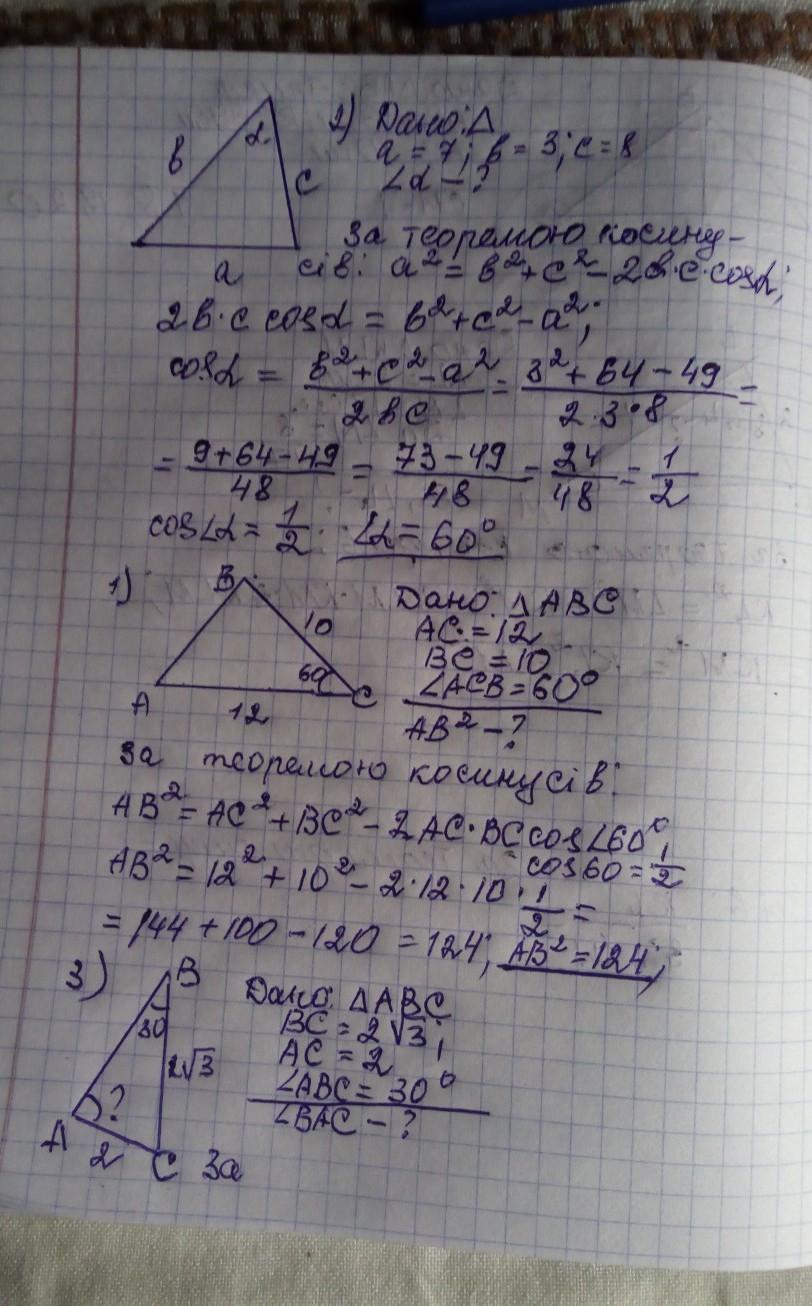 2) Дано: Δ
a = 7; в = 3; c = 8
∠α – ?
в
α
c
a
За теоремою косину-
сів: a² = в² + c² – 2в·c·cosα;
2в·c cosα = в² + c² – a²;
cosα = (в² + c² – a²)/(2вc) = (3² + 64 – 49)/(2·3·8) =
= (9 + 64 – 49)/48 = (73 – 49)/48 = 24/48 = 1/2
cos∠α = 1/2; ∠α = 60°
1)
B
10
60
A
12
C
Дано: ΔABC
AC = 12
BC = 10
∠ACB = 60°
AB² – ?
За теоремою косинусів:
AB² = AC² + BC² – 2AC·BC cos∠60°,
cos60 = 1/2
AB² = 12² + 10² – 2·12·10·1/2 =
= 144 + 100 – 120 = 124; AB² = 124;
3)
B
30
2√3
?
A
2
C
Дано: ΔABC
BC = 2√3;
AC = 2;
∠ABC = 30°
∠BAC – ?
За